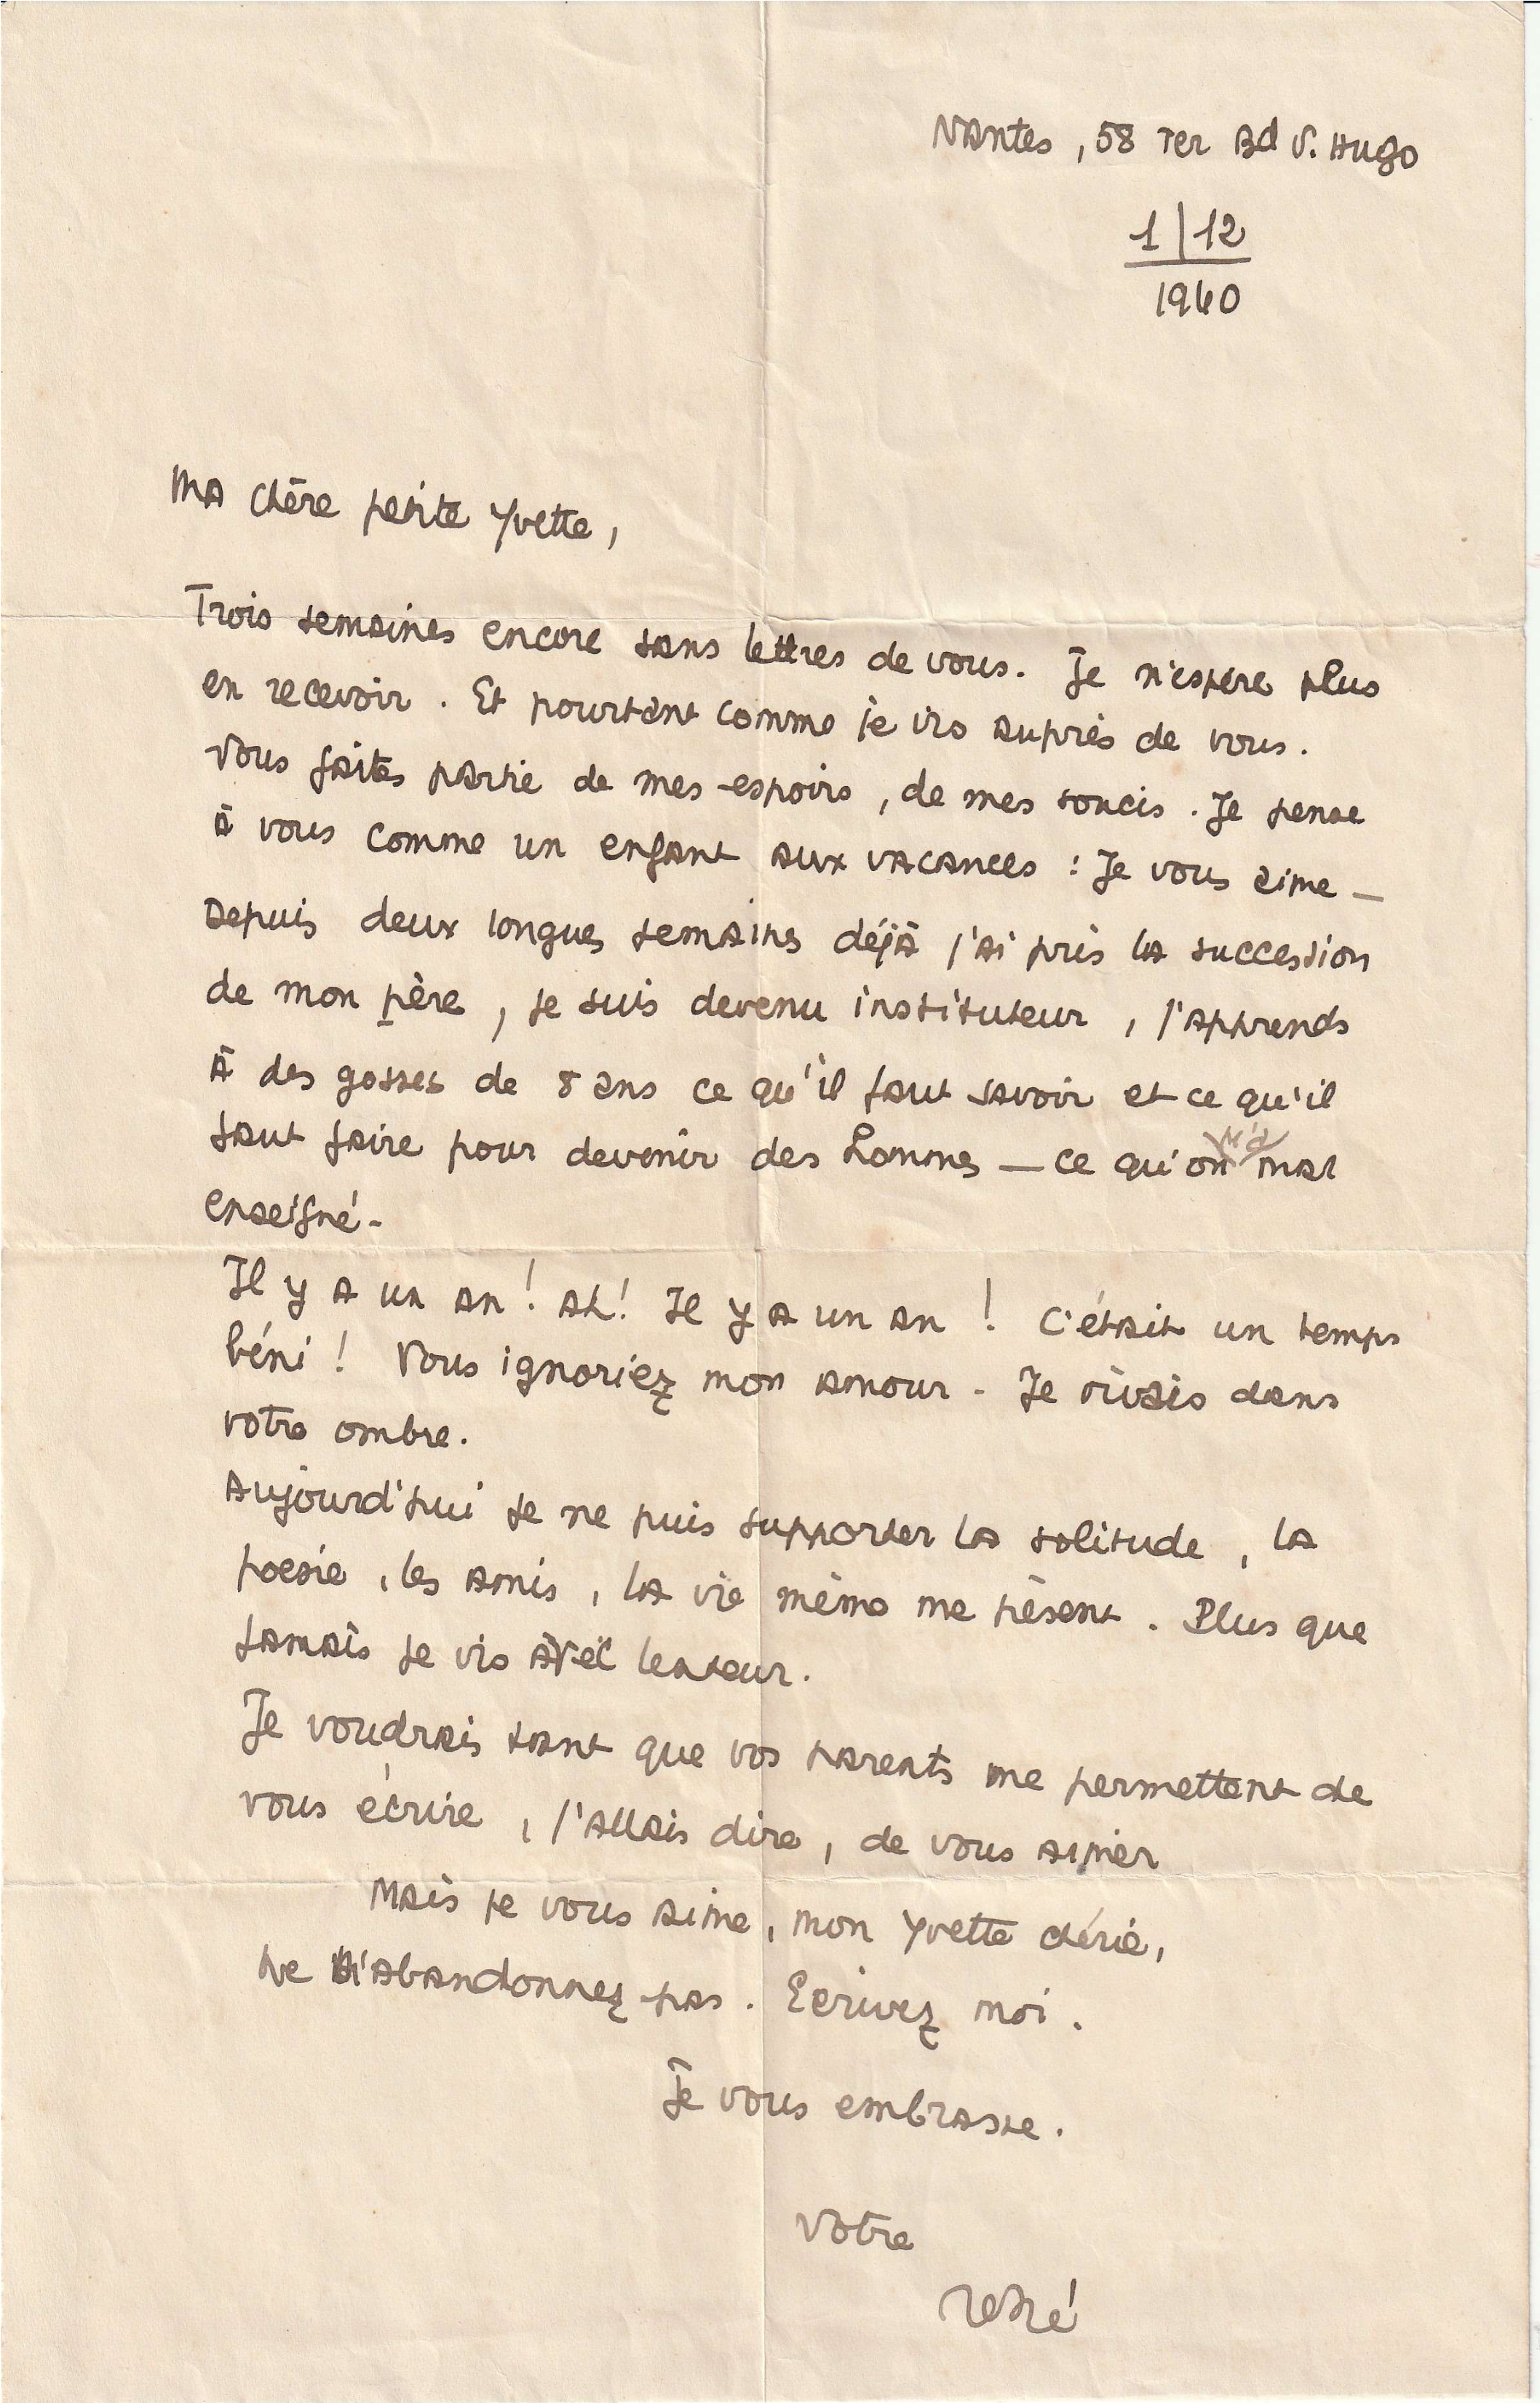 Nantes, 58 Ter Bd V. Hugo
1/12
1940
Ma chère petite Yvette,
Trois semaines encore sans lettres de vous. Je n'espère plus
en recevoir. Et pourtant comme je vis auprès de vous.
Vous faites partie de mes espoirs, de mes soucis. Je pense
à vous comme un enfant aux vacances : Je vous aime —
Depuis deux longues semaines déjà j'ai pris la succession
de mon père, je suis devenu instituteur, j'apprends
à des gosses de 8 ans ce qu'il faut savoir et ce qu'il
faut faire pour devenir des hommes — ce qu'on m'a mal
enseigné -
Il y a un an ! Ah ! Il y a un an ! C'était un temps
béni ! Vous ignoriez mon amour - Je vivais dans
votre ombre.
Aujourd'hui je ne puis supporter la solitude, la
poesie, les amis, la vie même me pèsent. Plus que
jamais je vis avec lenteur.
Je voudrais tant que vos parents me permettent de
vous écrire, j'allais dire, de vous aimer
Mais je vous aime, mon Yvette chérie,
Ne m'abandonnez pas. Ecrivez moi.
Je vous embrasse.
Votre
René